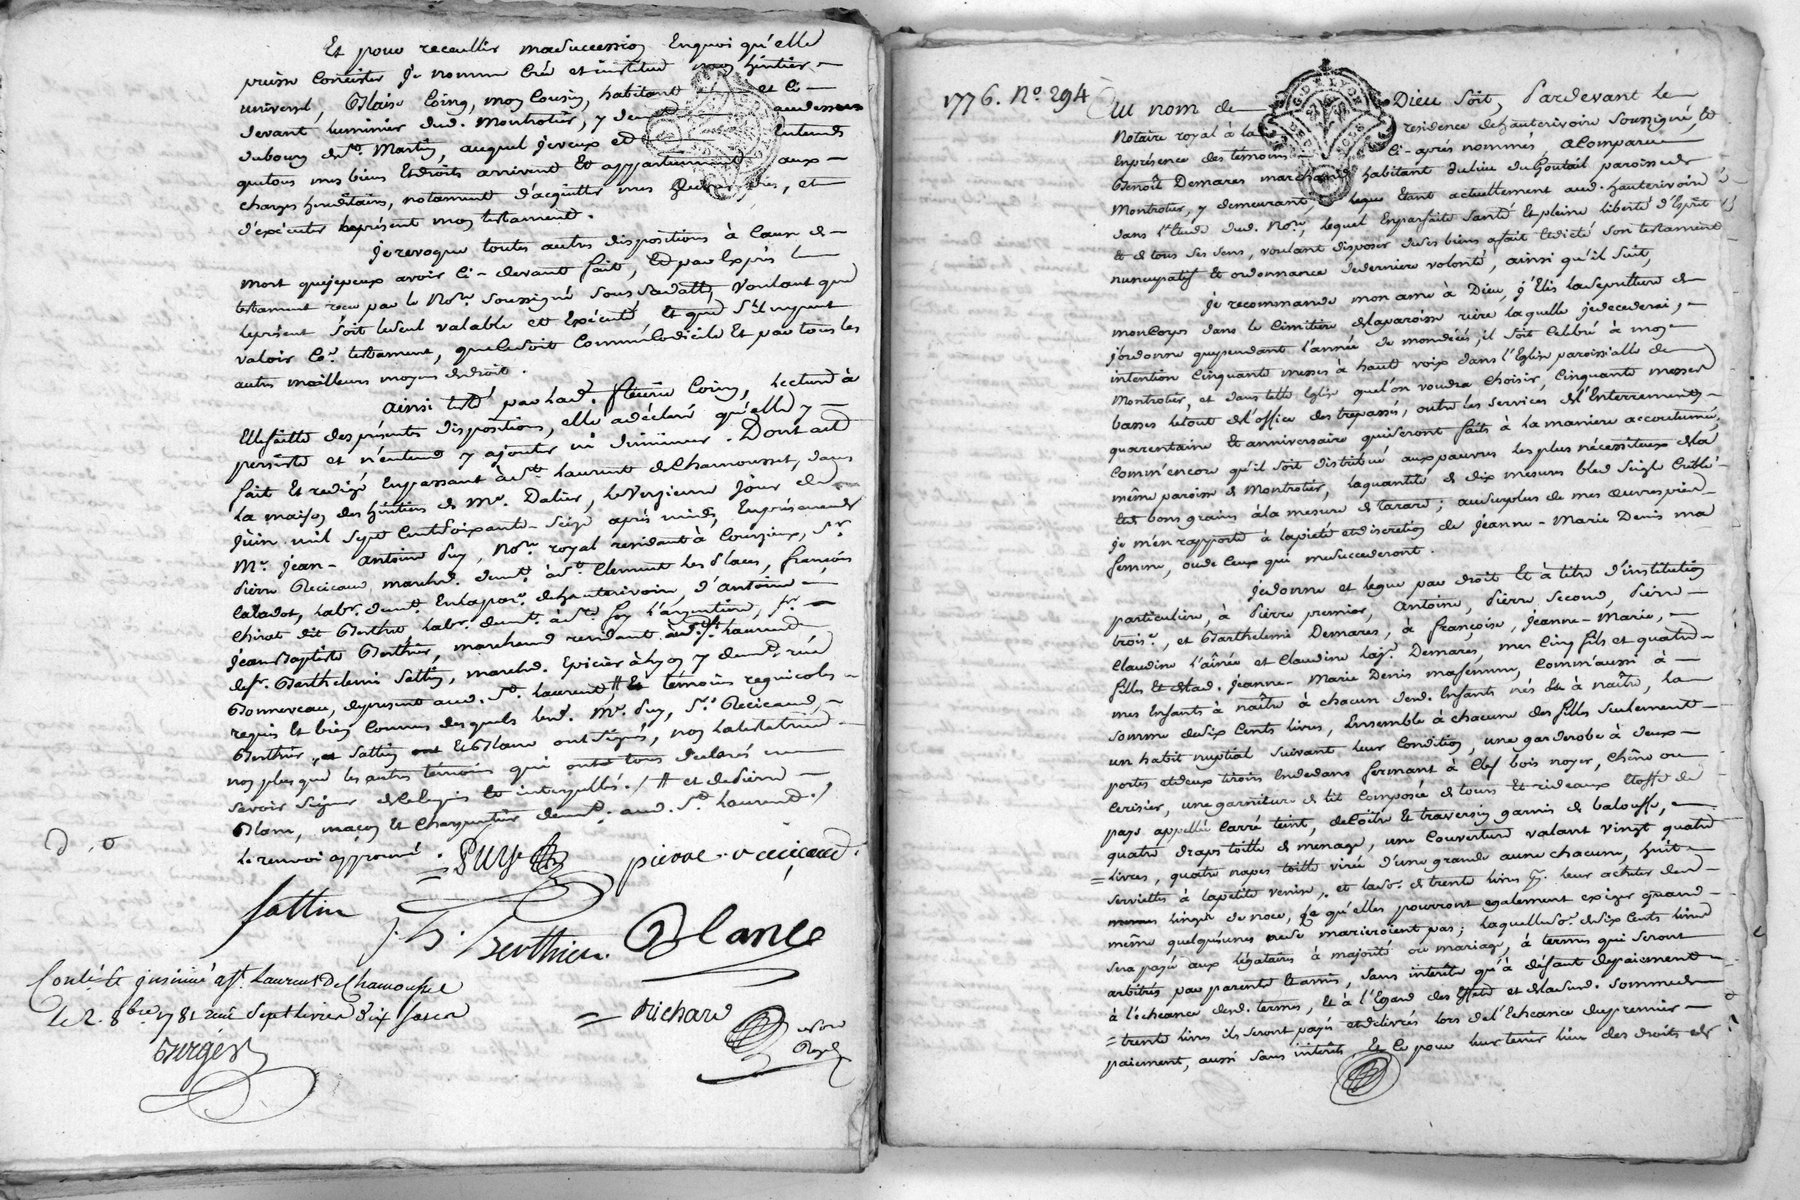 Et pour recueillir ma succession En quoi qu'elle
puisse Consister je nomme Crée et institue mon héritier
universel, Blaise Coing, mon Cousin, habitant et Ci-
devant luminier dud. Montrotier, y dem
du bourg de St. Martin, auquel je veux et Entends
que tous mes biens Et droits arrivent Et appartiennent, aux
charges héréditaires, notament d'acquitter mes et
d'exécuter le présent mon testament.
Je revoque toutes autres dispositions à Cause de
mort que je peux avoir Ci-devant fait, Et par Exprès le
testament reçu par le Nore. soussigné sous sa datte, voulant que
le présent soit le seul valable et Exécuté Et que s'il ne peut
valoir Co. testament, que le soit Comme Codicile Et par tous les
autres meilleurs moyens de droit.
Ainsi testé par lad. fleurie Coing, Lecture à
Elle faitte des présentes dispositions, elle a déclaré qu'elle y
persiste et n'entend y ajouter ni diminuer. Dont acte
fait Et redigé En passant à St. Laurent de Chamousset, dans
la maison des héritiers de Me. Dalier, le jour de
Juin mil sept Cent soixante-seize après midi, En présence de
Me. Jean-Antoine Puy, Nore. royal residant à Courzieu, Sr.
Pierre Recicaud marchd. demt. à St. Clement les Places, françois
labr. demt. En la par. de hauterivoire, d'Antoine
Chirat dit Berthet labr. demt. à Ste. foy l'argentière, Sr.
Jean Baptiste Berthier, marchand residant aud. St. Laurent
de Sr. Barthelemi Sattin, marchd. Epicier à Lyon y demt. rue
Bonneveau, de présent aud. St. Laurent, # Et témoins regnicoles
requis Et bien Connus desquels led. Me. Puy, Sr. Recicaud,
Berthier, et Sattin Et Blanc ont signés, non la testatrice
non plus que les autres témoins qui ont tous déclarés ne
savoir signer de ce Enquis Et interpellés./# et de Pierre
Blanc, maçon Et Charpentier demt. aud. St. Laurent./
le renvoi approuvé.
Puy pierre recicaud
sattin J. B. Berthier. Blanc
Contlé. Et insinué à St. Laurent De Chamousset
le 2. 8bre 1781 reçu Sept livres dix sols
Richard
nore
Royal
1776. No. 294
Au nom de Dieu soit, Pardevant Le
Notaire royal à la residence de hauterivoire soussigné, Et
En présence des témoins Ci-après nommés, a Comparu
Benoît Demares marchand habitant du lieu du Goutail paroisse de
Montrotier, y demeurant, lequel étant actuellement aud. hauterivoire
dans l'Etude dud. Nore, lequel En parfaite santé Et pleine liberté d'Esprit
Et de tous ses sens, voulant disposer de ses biens a fait Et dicté son testament
nuncupatif Et ordonnance de derniere volonté, ainsi qu'il suit,
Je recommande mon ame à Dieu, j'Elis la sepulture de
mon Corps dans le Cimitière de la paroisse rière laquelle je decederai,
j'ordonne que pendant l'année de mon décés, il soit Celebré à mon
intention Cinquante messes à haut voix dans l'Eglise paroissialle de
Montrotier, et dans telle Eglise que l'on voudra choisir, Cinquante messes
basses le tout de l'office des trepassés, outre les services de l'Enterrement,
quarentaine Et anniversaire qui seront faits à la maniere accoutumée,
Comm'encore qu'il soit distribué aux pauvres les plus nécessiteux de la
même paroisse de Montrotier, la quantité de dix mesures bled seigle Criblé
Et bons grains à la mesure de tarare; au surplus de mes œuvres pies
Je m'en rapporte à la pieté et discretion de Jeanne-Marie Denis ma
femme, ou de Ceux qui me succederont.
Je donne et legue par droit Et à titre d'institution
particuliere, à Pierre premier, Antoine, Pierre second, Pierre
troise., et Barthelemi Demares, à françoise, Jeanne-Marie,
Claudine l'aînée et Claudine la je. Demares, mes Cinq fils et quatre
filles Et de lad. Jeanne-Marie Denis ma femme, Comm'aussi à
mes Enfants à naître à chacun desd. Enfants nés Et à naître, la
somme de six Cents livres, Ensemble à chacune des filles seulement
un habit nuptial suivant leur Condition, une garderobe à deux
portes et deux tiroirs En dedans fermant à Clef bois noyer, chêne ou
Cerisier, une garniture de lit Composée de tours Et rideaux Etoffe de
pays appellée Carré teint, de Coitre Et traversin garnis de balouffe,
quatre draps toille de menage, une Couverture valant vingt quatre
livres, quatre napes toille virée d'une grande aune chacune, huit
serviettes à la petite venise, et la so. de trente livres pr. leur acheter leur
linge de noce, Ce qu'elles pourront egalement exiger quand
même quelqu'unes ne se marieroient pas; laquelle so. de six Cents livres
sera payé aux légataires à majorité ou mariage, à termes qui seront
arbitrés par parents Et amis, sans interêts qu'à défaut de paiement
à l'échéance desd. termes, Et à l'égard des effets et de la susd. somme de
trente livres ils seront payés et délivrés lors de l'Echeance du premier
paiement, aussi sans interêts. Et Ce pour leur tenir lieu des droits de